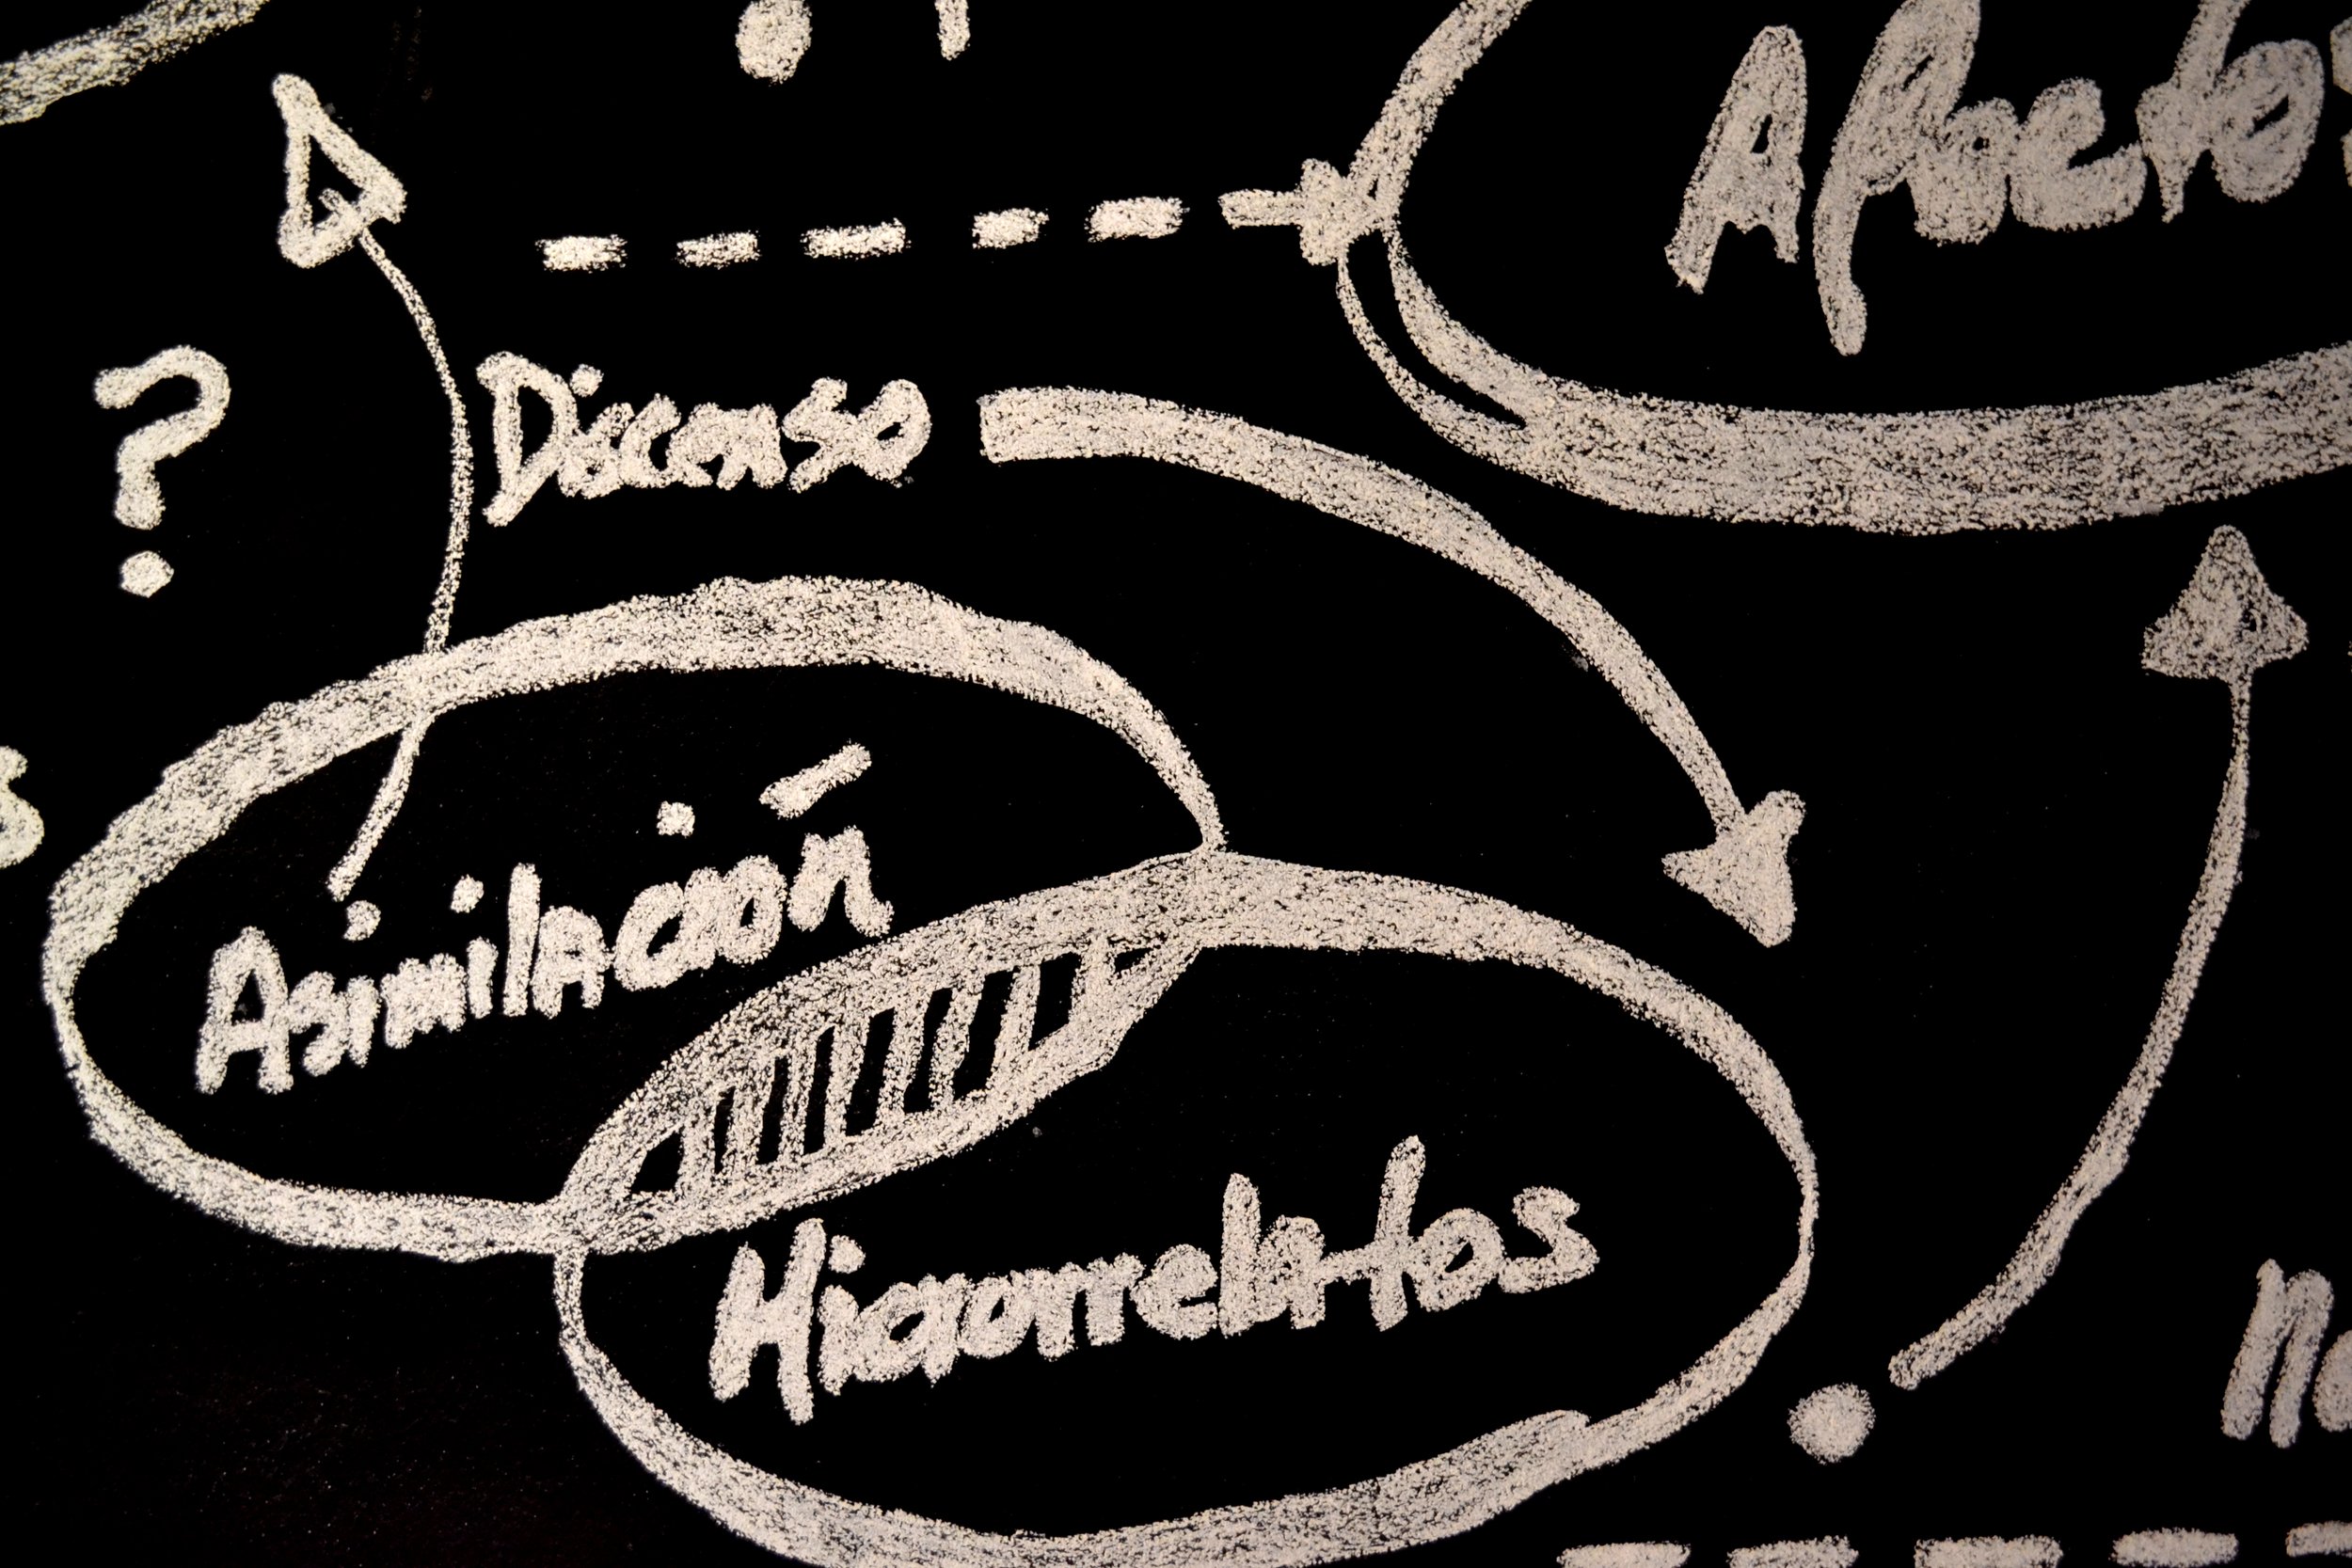 Afecto
?
Discenso
Asimilación
Microrrelatos